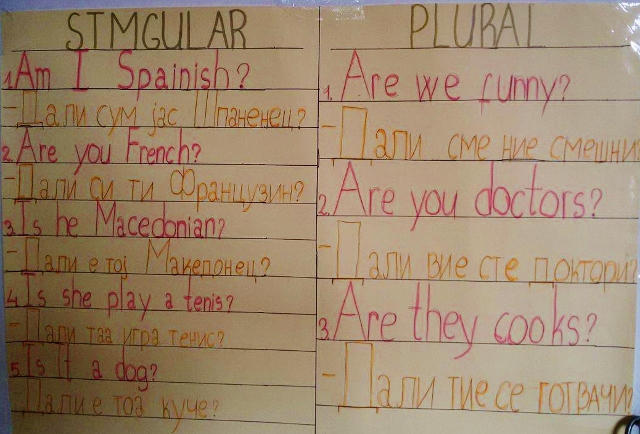 STMGULAR
1. Am I Spainish?
- Дали сум јас Шпаненец?
2. Are you French?
- Дали си ти Французин?
3. Is he Macedonian?
- Дали е тој Македонец?
4. Is she play a tenis?
- Дали таа игра тенис?
5. Is It a dog?
- Дали е тоа куче?
PLURAL
1. Are we funny?
- Дали сме ние смешни?
2. Are you doctors?
- Дали вие сте доктори?
3. Are they cooks?
- Дали тие се готвачи?